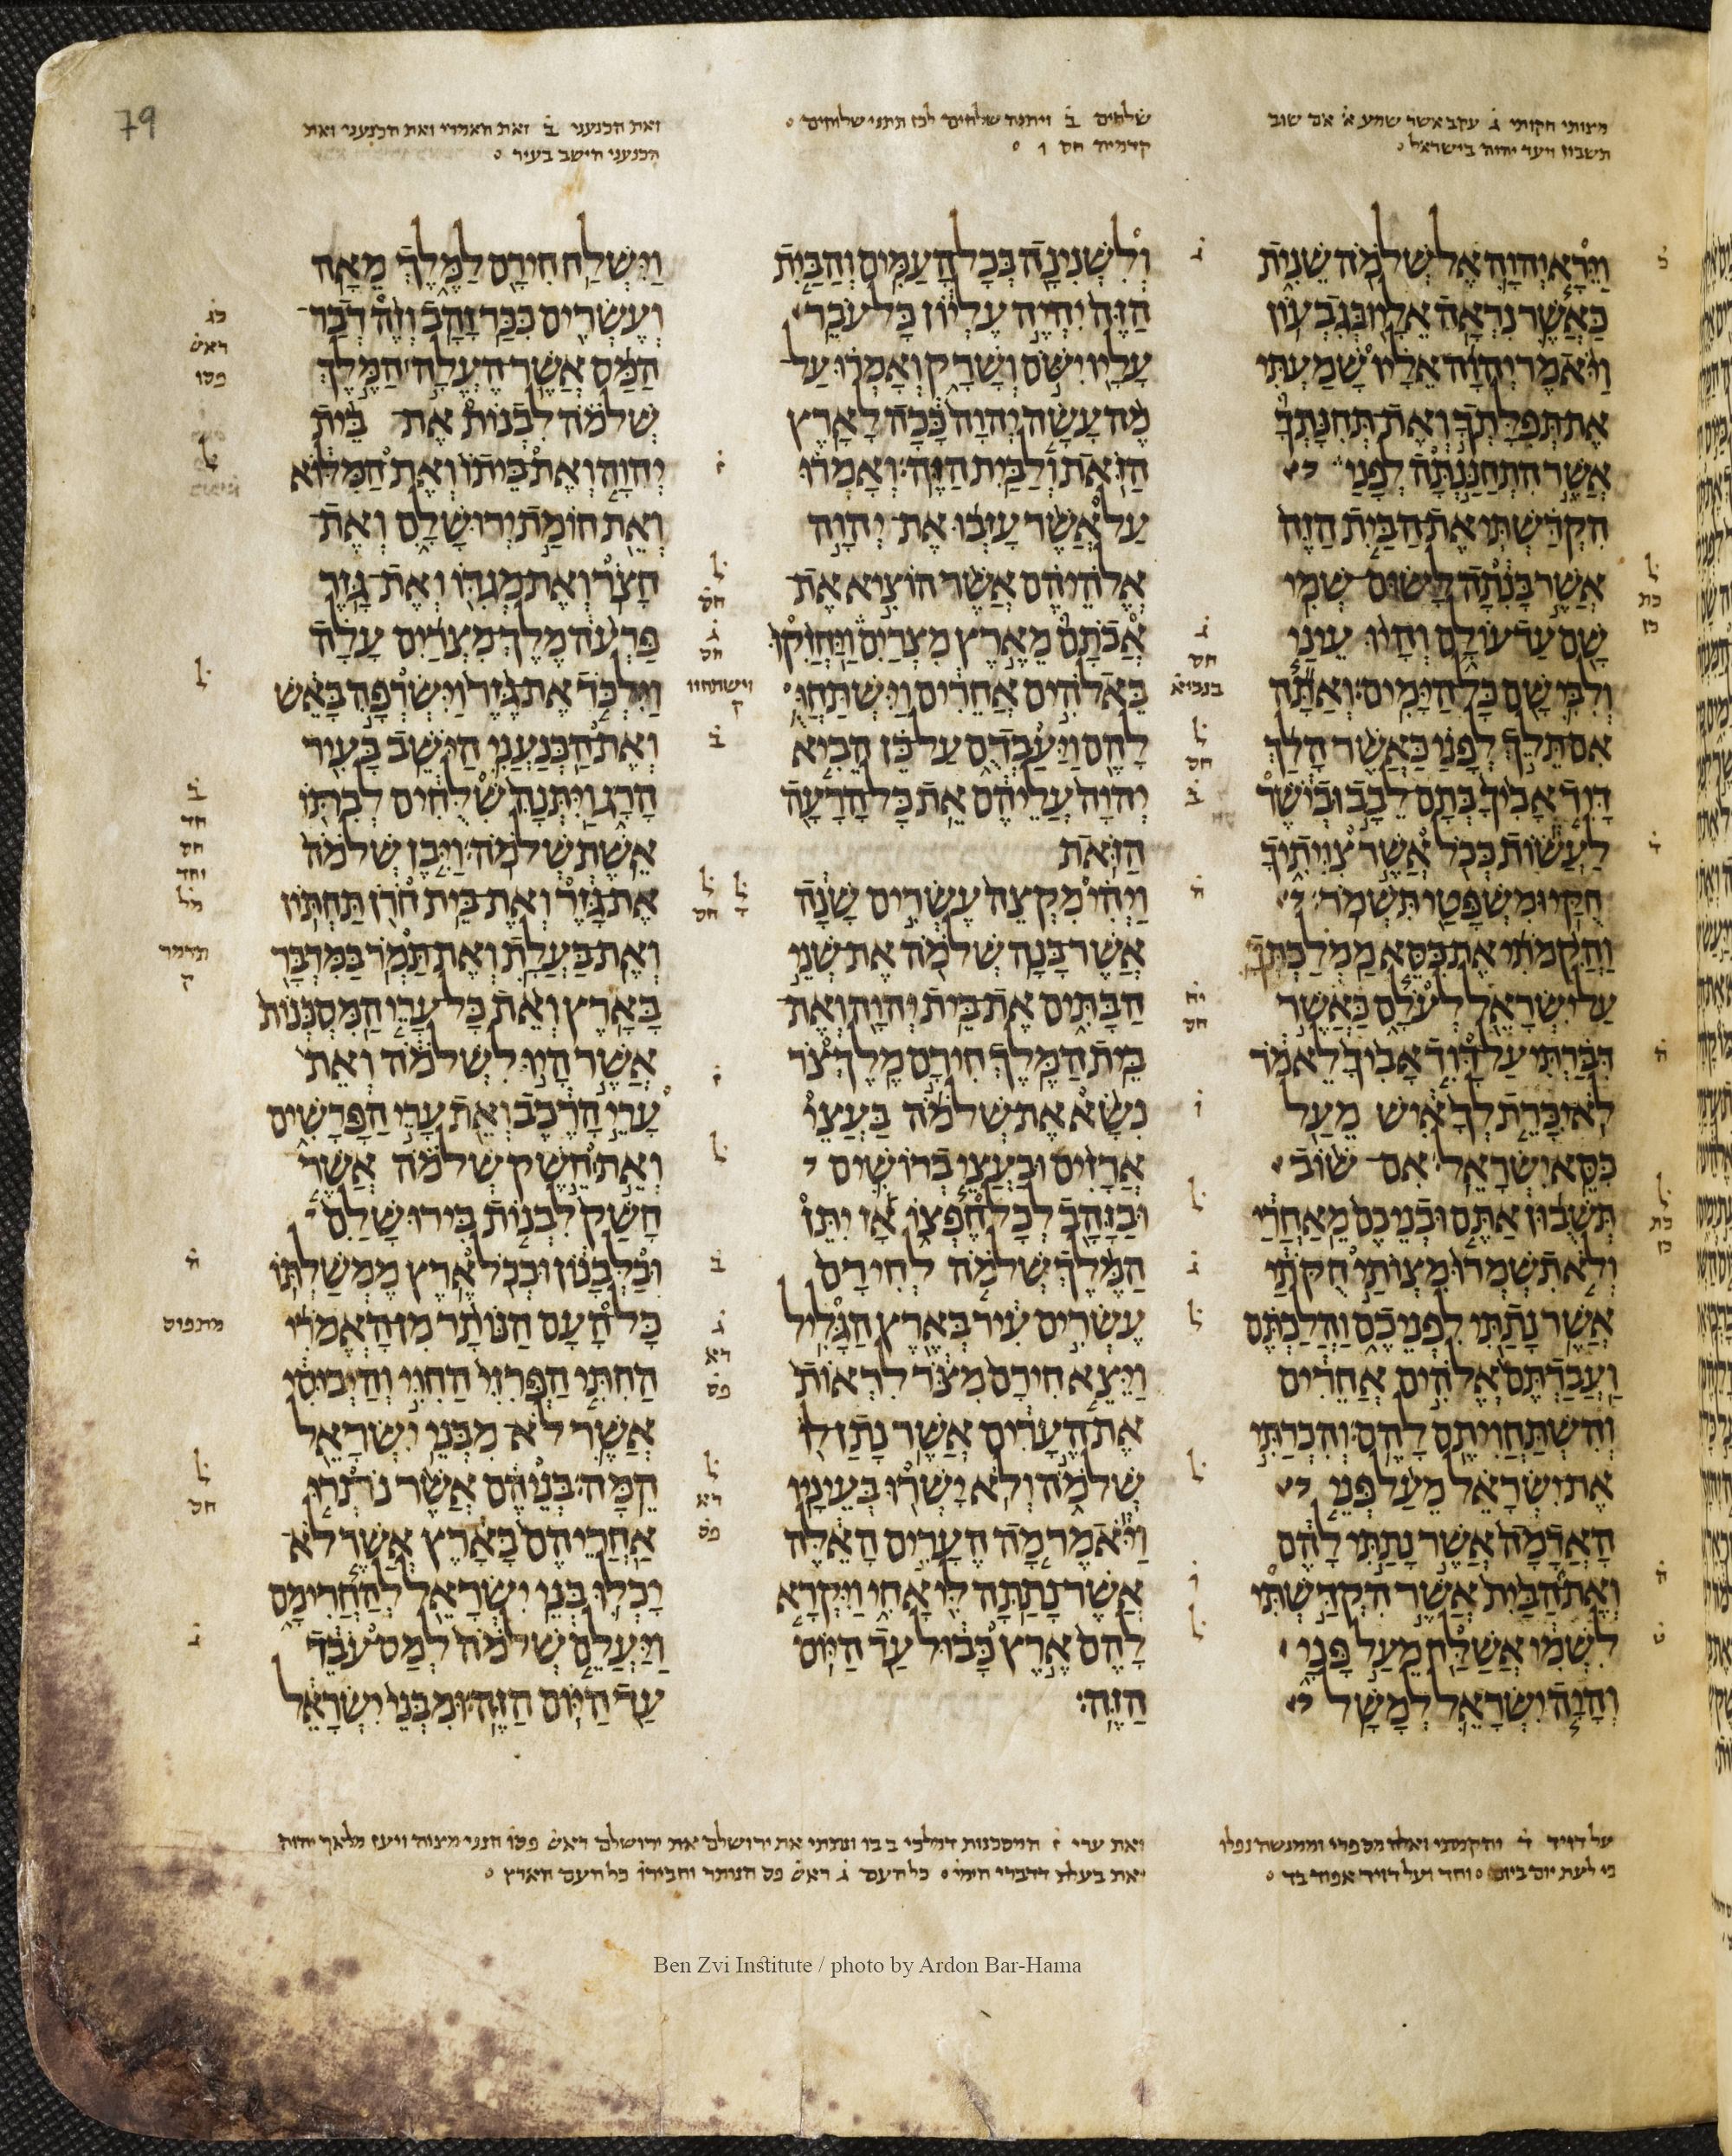 79
מצותי חקותי ג עקב אשר שמע א אם שוב
תשבון ויעד יהוה בישראל
שלחים ב ויתנה שלחים לכן תתני שלוחים
קדמיה חס ו
ואת הכנעני ב ואת האמרי ואת הכנעני ואת
הכנעני הישב בעיר
וַיֵּרָא יְהוָה אֶל שְׁלֹמֹה שֵׁנִית
כַּאֲשֶׁר נִרְאָה אֵלָיו בְּגִבְעוֹן
וַיֹּאמֶר יְהוָה אֵלָיו שָׁמַעְתִּי
אֶת תְּפִלָּתְךָ וְאֶת תְּחִנָּתְךָ
אֲשֶׁר הִתְחַנַּנְתָּה לְפָנַי
הִקְדַּשְׁתִּי אֶת הַבַּיִת הַזֶּה
אֲשֶׁר בָּנִתָה לָשׂוּם שְׁמִי
שָׁם עַד עוֹלָם וְהָיוּ עֵינַי
וְלִבִּי שָׁם כָּל הַיָּמִים׃ וְאַתָּה
אִם תֵּלֵךְ לְפָנַי כַּאֲשֶׁר הָלַךְ
דָּוִד אָבִיךָ בְּתָם לֵבָב וּבְיֹשֶׁר
לַעֲשׂוֹת כְּכֹל אֲשֶׁר צִוִּיתִיךָ
חֻקַּי וּמִשְׁפָּטַי תִּשְׁמֹר׃
וַהֲקִמֹתִי אֶת כִּסֵּא מַמְלַכְתְּךָ
עַל יִשְׂרָאֵל לְעֹלָם כַּאֲשֶׁר
דִּבַּרְתִּי עַל דָּוִד אָבִיךָ לֵאמֹר
לֹא יִכָּרֵת לְךָ אִישׁ מֵעַל
כִּסֵּא יִשְׂרָאֵל׃ אִם שׁוֹב
תְּשֻׁבוּן אַתֶּם וּבְנֵיכֶם מֵאַחֲרַי
וְלֹא תִשְׁמְרוּ מִצְוֹתַי חֻקֹּתַי
אֲשֶׁר נָתַתִּי לִפְנֵיכֶם וַהֲלַכְתֶּם
וַעֲבַדְתֶּם אֱלֹהִים אֲחֵרִים
וְהִשְׁתַּחֲוִיתֶם לָהֶם׃ וְהִכְרַתִּי
אֶת יִשְׂרָאֵל מֵעַל פְּנֵי
הָאֲדָמָה אֲשֶׁר נָתַתִּי לָהֶם
וְאֶת הַבַּיִת אֲשֶׁר הִקְדַּשְׁתִּי
לִשְׁמִי אֲשַׁלַּח מֵעַל פָּנָי
וְהָיָה יִשְׂרָאֵל לְמָשָׁל
וְלִשְׁנִינָה בְּכָל הָעַמִּים׃ וְהַבַּיִת
הַזֶּה יִהְיֶה עֶלְיוֹן כָּל עֹבֵר
עָלָיו יִשֹּׁם וְשָׁרָק וְאָמְרוּ עַל
מֶה עָשָׂה יְהוָה כָּכָה לָאָרֶץ
הַזֹּאת וְלַבַּיִת הַזֶּה׃ וְאָמְרוּ
עַל אֲשֶׁר עָזְבוּ אֶת יְהוָה
אֱלֹהֵיהֶם אֲשֶׁר הוֹצִיא אֶת
אֲבֹתָם מֵאֶרֶץ מִצְרַיִם וַיַּחֲזִקוּ
בֵּאלֹהִים אֲחֵרִים וַיִּשְׁתַּחֲוֻ
לָהֶם וַיַּעַבְדֻם עַל כֵּן הֵבִיא
יְהוָה עֲלֵיהֶם אֵת כָּל הָרָעָה
הַזֹּאת
וַיְהִי מִקְצֵה עֶשְׂרִים שָׁנָה
אֲשֶׁר בָּנָה שְׁלֹמֹה אֶת שְׁנֵי
הַבָּתִּים אֶת בֵּית יְהוָה וְאֶת
בֵּית הַמֶּלֶךְ׃ חִירָם מֶלֶךְ צֹר
נִשָּׂא אֶת שְׁלֹמֹה בַּעֲצֵי
אֲרָזִים וּבַעֲצֵי בְרוֹשִׁים
וּבַזָּהָב לְכָל חֶפְצוֹ אָז יִתֵּן
הַמֶּלֶךְ שְׁלֹמֹה לְחִירָם
עֶשְׂרִים עִיר בְּאֶרֶץ הַגָּלִיל׃
וַיֵּצֵא חִירָם מִצֹּר לִרְאוֹת
אֶת הֶעָרִים אֲשֶׁר נָתַן לוֹ
שְׁלֹמֹה וְלֹא יָשְׁרוּ בְּעֵינָיו׃
וַיֹּאמֶר מָה הֶעָרִים הָאֵלֶּה
אֲשֶׁר נָתַתָּה לִּי אָחִי וַיִּקְרָא
לָהֶם אֶרֶץ כָּבוּל עַד הַיּוֹם
הַזֶּה׃
וַיִּשְׁלַח חִירָם לַמֶּלֶךְ מֵאָה
וְעֶשְׂרִים כִּכַּר זָהָב׃ וְזֶה דְבַר
הַמַּס אֲשֶׁר הֶעֱלָה הַמֶּלֶךְ
שְׁלֹמֹה לִבְנוֹת אֶת בֵּית
יְהוָה וְאֶת בֵּיתוֹ וְאֶת הַמִּלּוֹא
וְאֵת חוֹמַת יְרוּשָׁלִָם וְאֶת
חָצֹר וְאֶת מְגִדּוֹ וְאֶת גָּזֶר׃
פַּרְעֹה מֶלֶךְ מִצְרַיִם עָלָה
וַיִּלְכֹּד אֶת גֶּזֶר וַיִּשְׂרְפָהּ בָּאֵשׁ
וְאֶת הַכְּנַעֲנִי הַיֹּשֵׁב בָּעִיר
הָרָג וַיִּתְּנָהּ שִׁלֻּחִים לְבִתּוֹ
אֵשֶׁת שְׁלֹמֹה׃ וַיִּבֶן שְׁלֹמֹה
אֶת גָּזֶר וְאֶת בֵּית חֹרֹן תַּחְתּוֹן׃
וְאֶת בַּעֲלָת וְאֶת תַּמֹר בַּמִּדְבָּר
בָּאָרֶץ׃ וְאֵת כָּל עָרֵי הַמִּסְכְּנוֹת
אֲשֶׁר הָיוּ לִשְׁלֹמֹה וְאֵת
עָרֵי הָרֶכֶב וְאֵת עָרֵי הַפָּרָשִׁים
וְאֵת חֵשֶׁק שְׁלֹמֹה אֲשֶׁר
חָשַׁק לִבְנוֹת בִּירוּשָׁלִַם
וּבַלְּבָנוֹן וּבְכֹל אֶרֶץ מֶמְשַׁלְתּוֹ׃
כָּל הָעָם הַנּוֹתָר מִן הָאֱמֹרִי
הַחִתִּי הַפְּרִזִּי הַחִוִּי וְהַיְבוּסִי
אֲשֶׁר לֹא מִבְּנֵי יִשְׂרָאֵל
הֵמָּה׃ בְּנֵיהֶם אֲשֶׁר נֹתְרוּ
אַחֲרֵיהֶם בָּאָרֶץ אֲשֶׁר לֹא
יָכְלוּ בְּנֵי יִשְׂרָאֵל לְהַחֲרִימָם
וַיַּעֲלֵם שְׁלֹמֹה לְמַס עֹבֵד
עַד הַיּוֹם הַזֶּה׃ וּמִבְּנֵי יִשְׂרָאֵל
על דויד ד והקמתי ואלה מספרי וממנשה נפלו
כי לעת יום ביום וחד ועל דויד אפוד בד
ואת ערי ז המסכנות דמלכי ב בו ונתתי את ירושלם את ירושלם ראש פסו חנני מצוה ויעז מלאך יהוה
ואת בעלת דדברי הימי כל העם ג ראש פס הנותר וחבירו כל העם הארץ
Ben Zvi Institute / photo by Ardon Bar-Hama